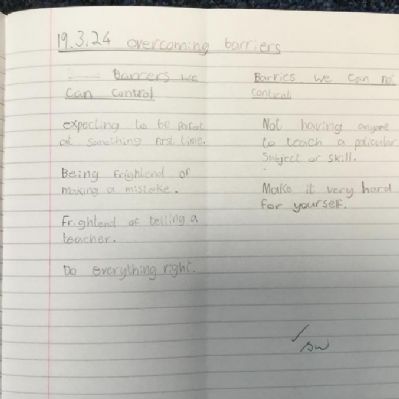 19.3.24 overcoming barriers
Barrers we
Can Control
expecting to be
at something first time.
Being frightend of
making a mistake.
Frightend of telling a
teacher.
Do everything right.
Barries we can not
control
Not having anyone
to teach a paticular
Subject or skill.
Make it very hard
for yourself.